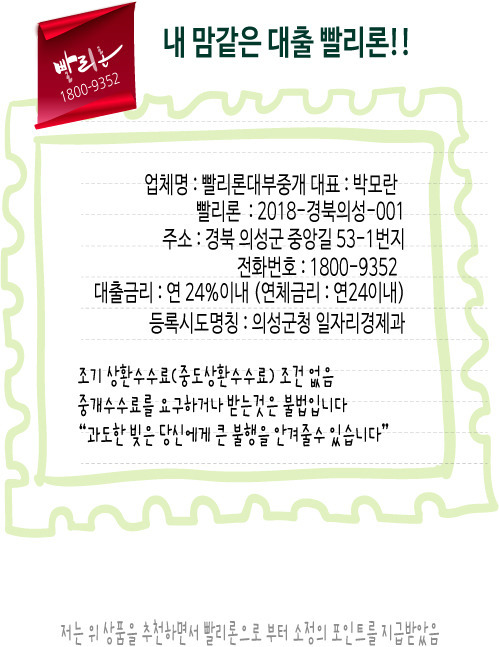 내 맘같은 대출 빨리론!!
빨리론
1800-9352
업체명 : 빨리론대부중개 대표 : 박모란
빨리론 : 2018-경북의성-001
주소 : 경북 의성군 중앙길 53-1번지
전화번호 : 1800-9352
대출금리 : 연 24%이내 (연체금리 : 연24이내)
등록시도명칭 : 의성군청 일자리경제과
조기 상환수수료(중도상환수수료) 조건 없음
중개수수료를 요구하거나 받는것은 불법입니다
“과도한 빚은 당신에게 큰 불행을 안겨줄수 있습니다”
저는 위 상품을 추천하면서 빨리론으로 부터 소정의 포인트를 지급받았음